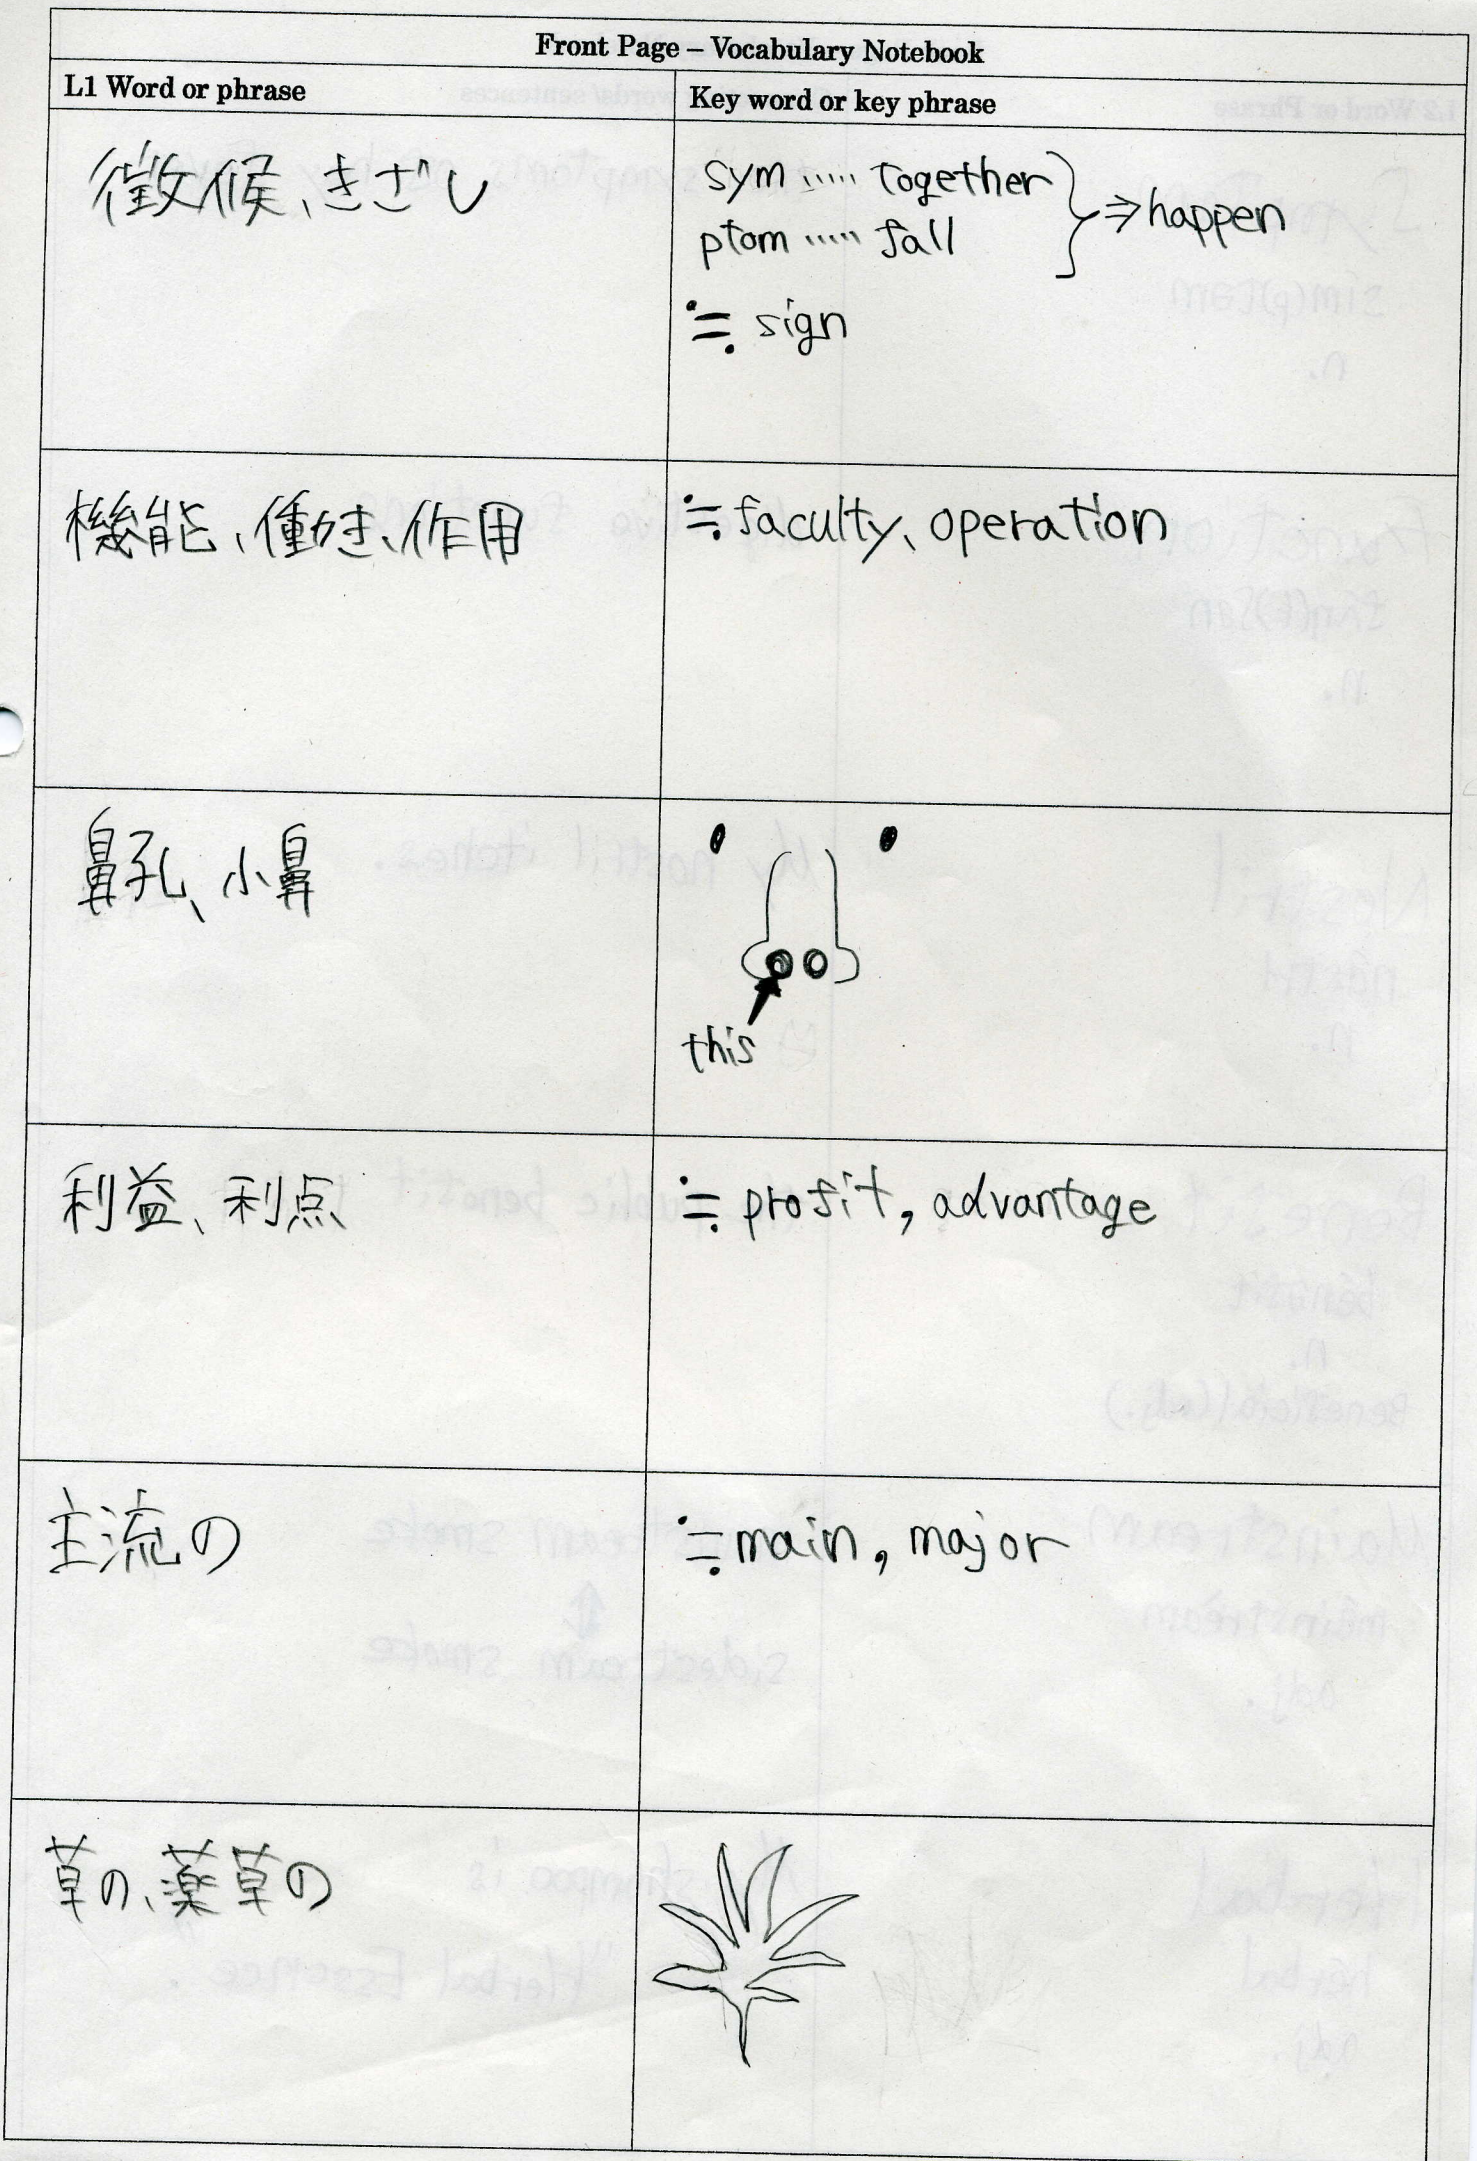 Front Page – Vocabulary Notebook
L1 Word or phrase
Key word or key phrase
徴候、きざし
sym ..... together
ptom ..... fall
⇒ happen
≒ sign
機能、働き、作用
≒ faculty、operation
鼻孔、小鼻
this
利益、利点
≒ profit, advantage
主流の
≒ main, major
草の、薬草の